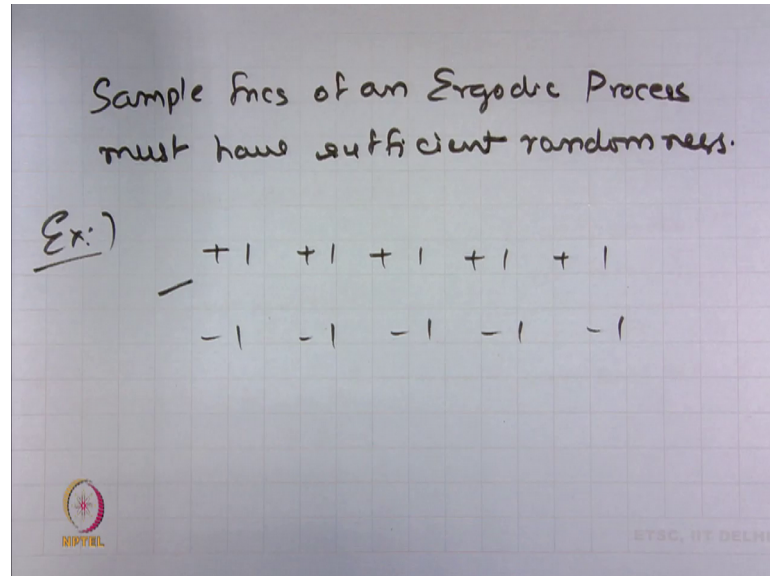 Sample fncs of an Ergodic Process
must have sufficient randomness.
Ex:)
+1 +1 +1 +1 +1
-1 -1 -1 -1 -1
NPTEL
ETSC, IIT DELHI